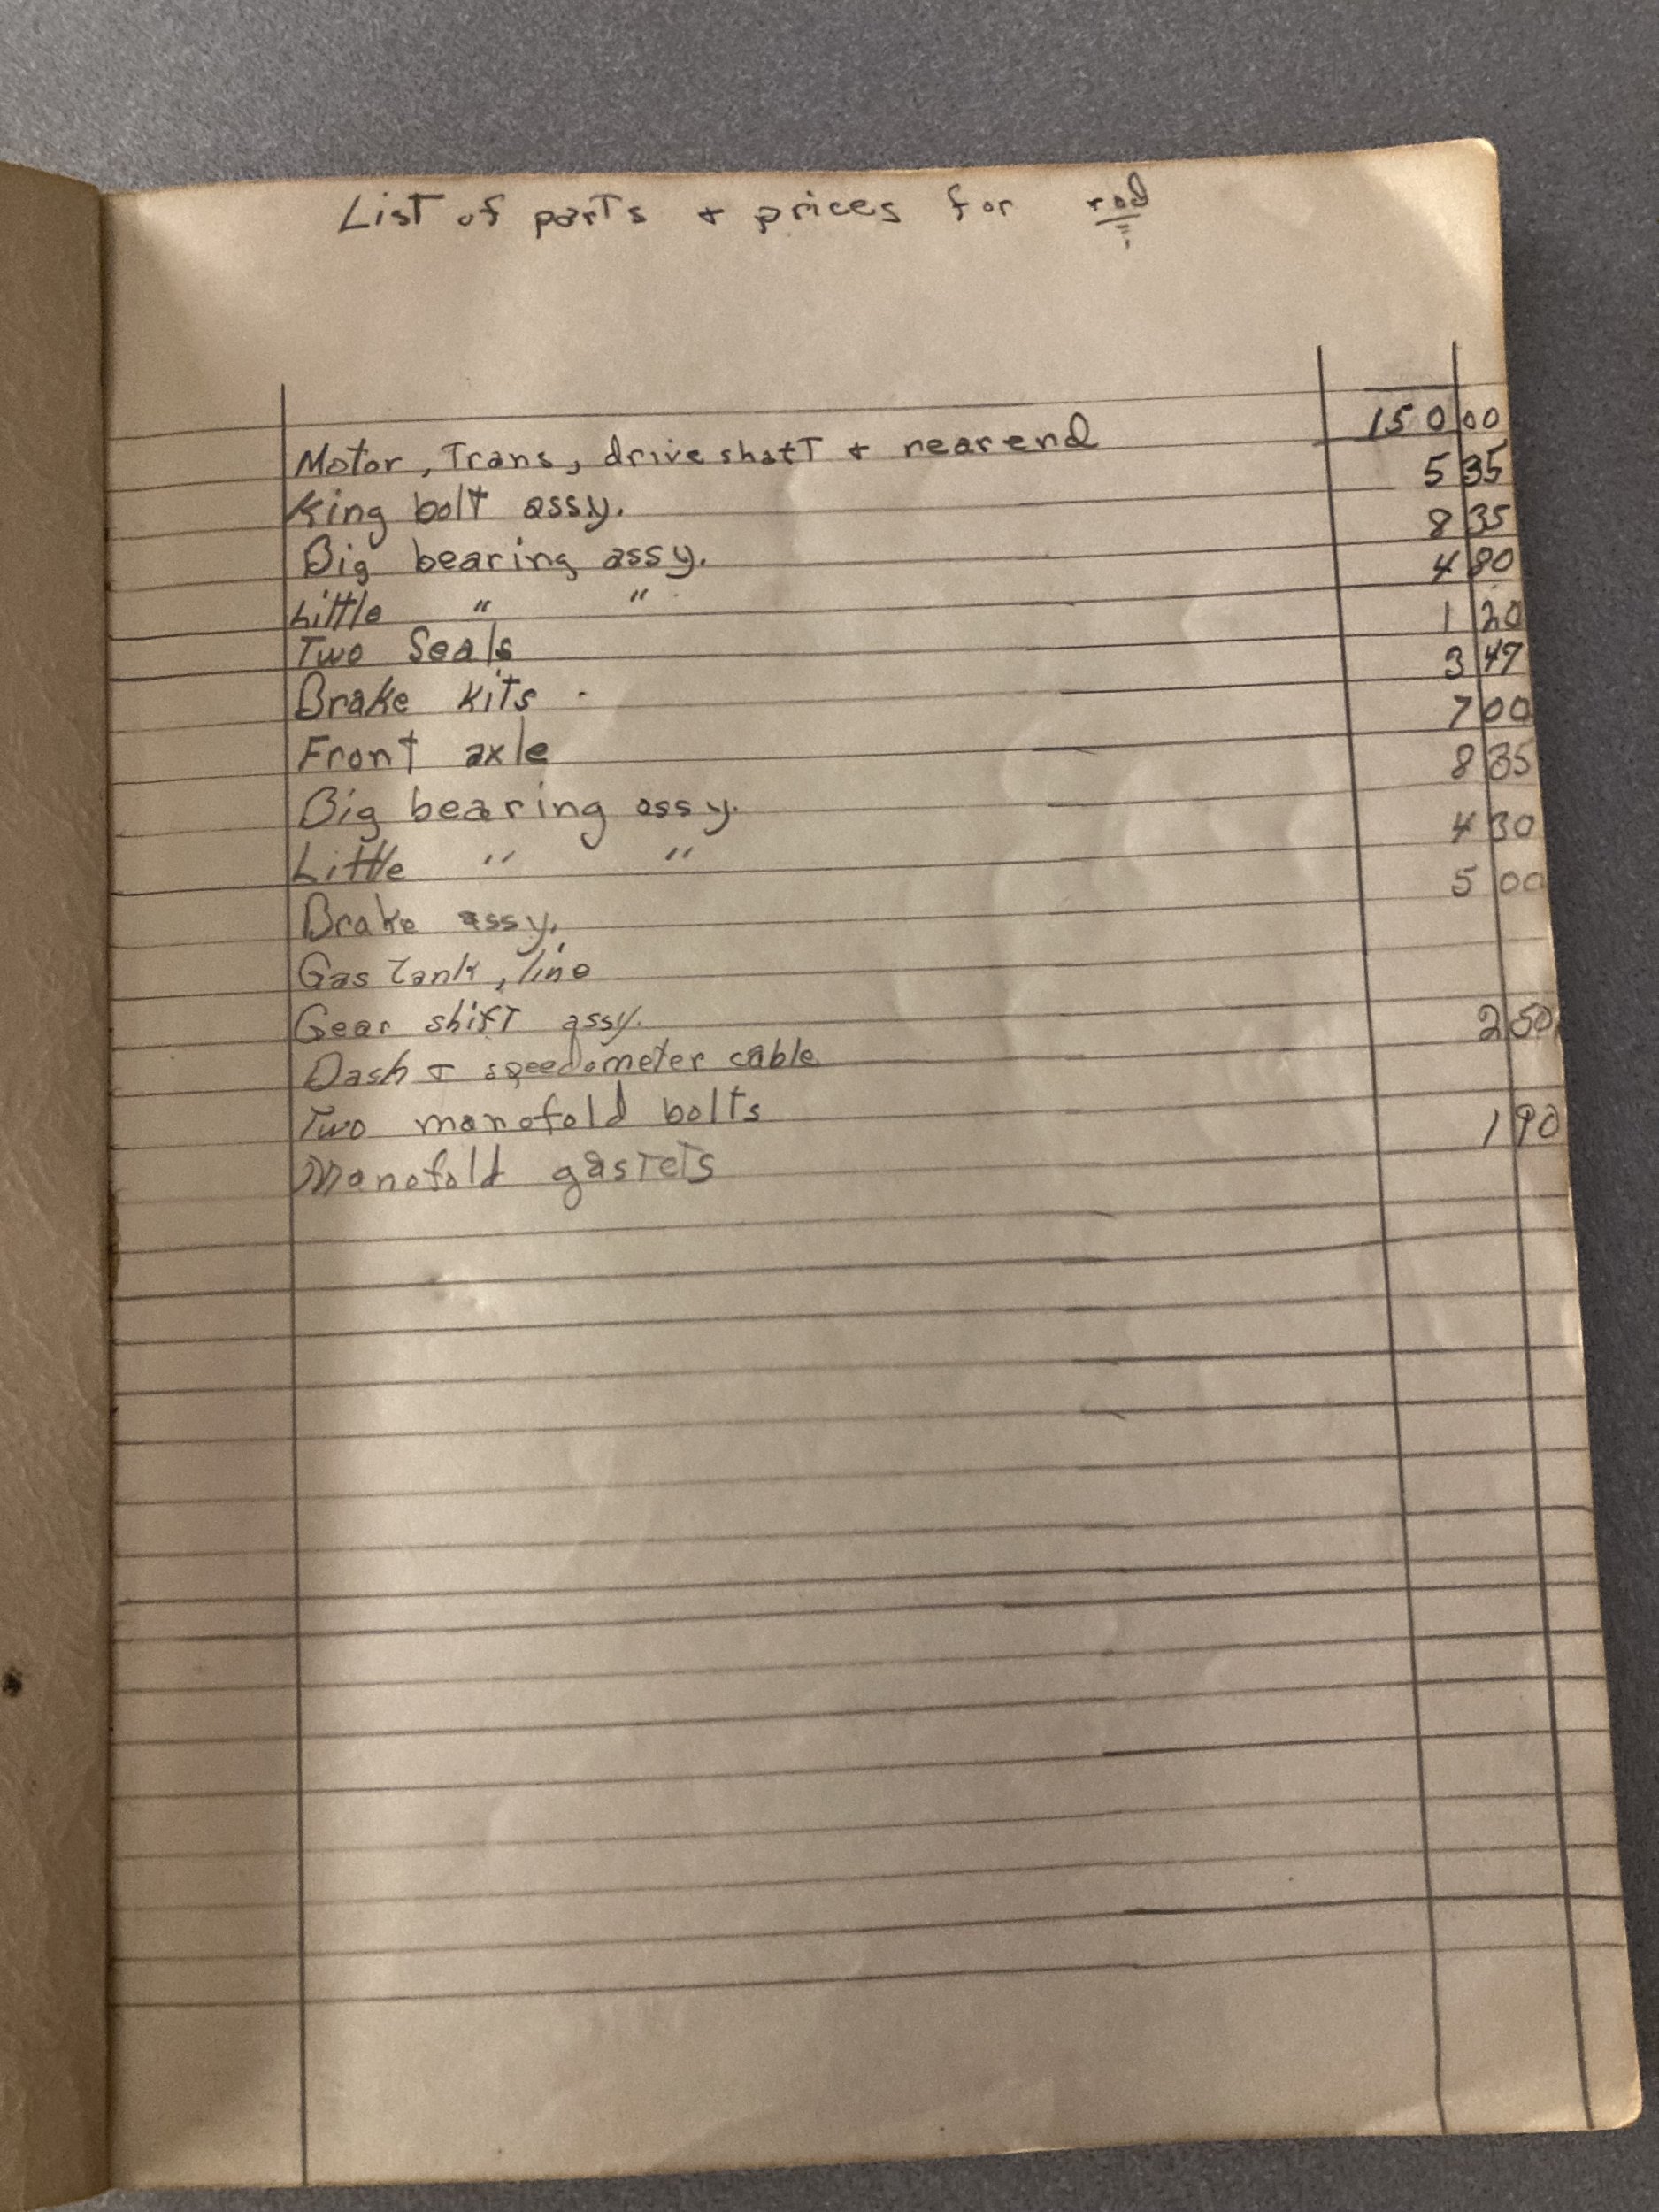 List of parts + prices for rod
Motor, Trans, drive shaft + rearend 150 00
King bolt assy. 5 35
Big bearing assy. 8 35
Little " " 4 80
Two Seals 1 20
Brake kits - 3 47
Front axle 7 00
Big bearing assy. 8 35
Little " " 4 30
Brake assy. 5 00
Gas Tank, line
Gear shift assy.
Dash + speedometer cable 2 50
Two manofold bolts
Manofold gaskets 1 90